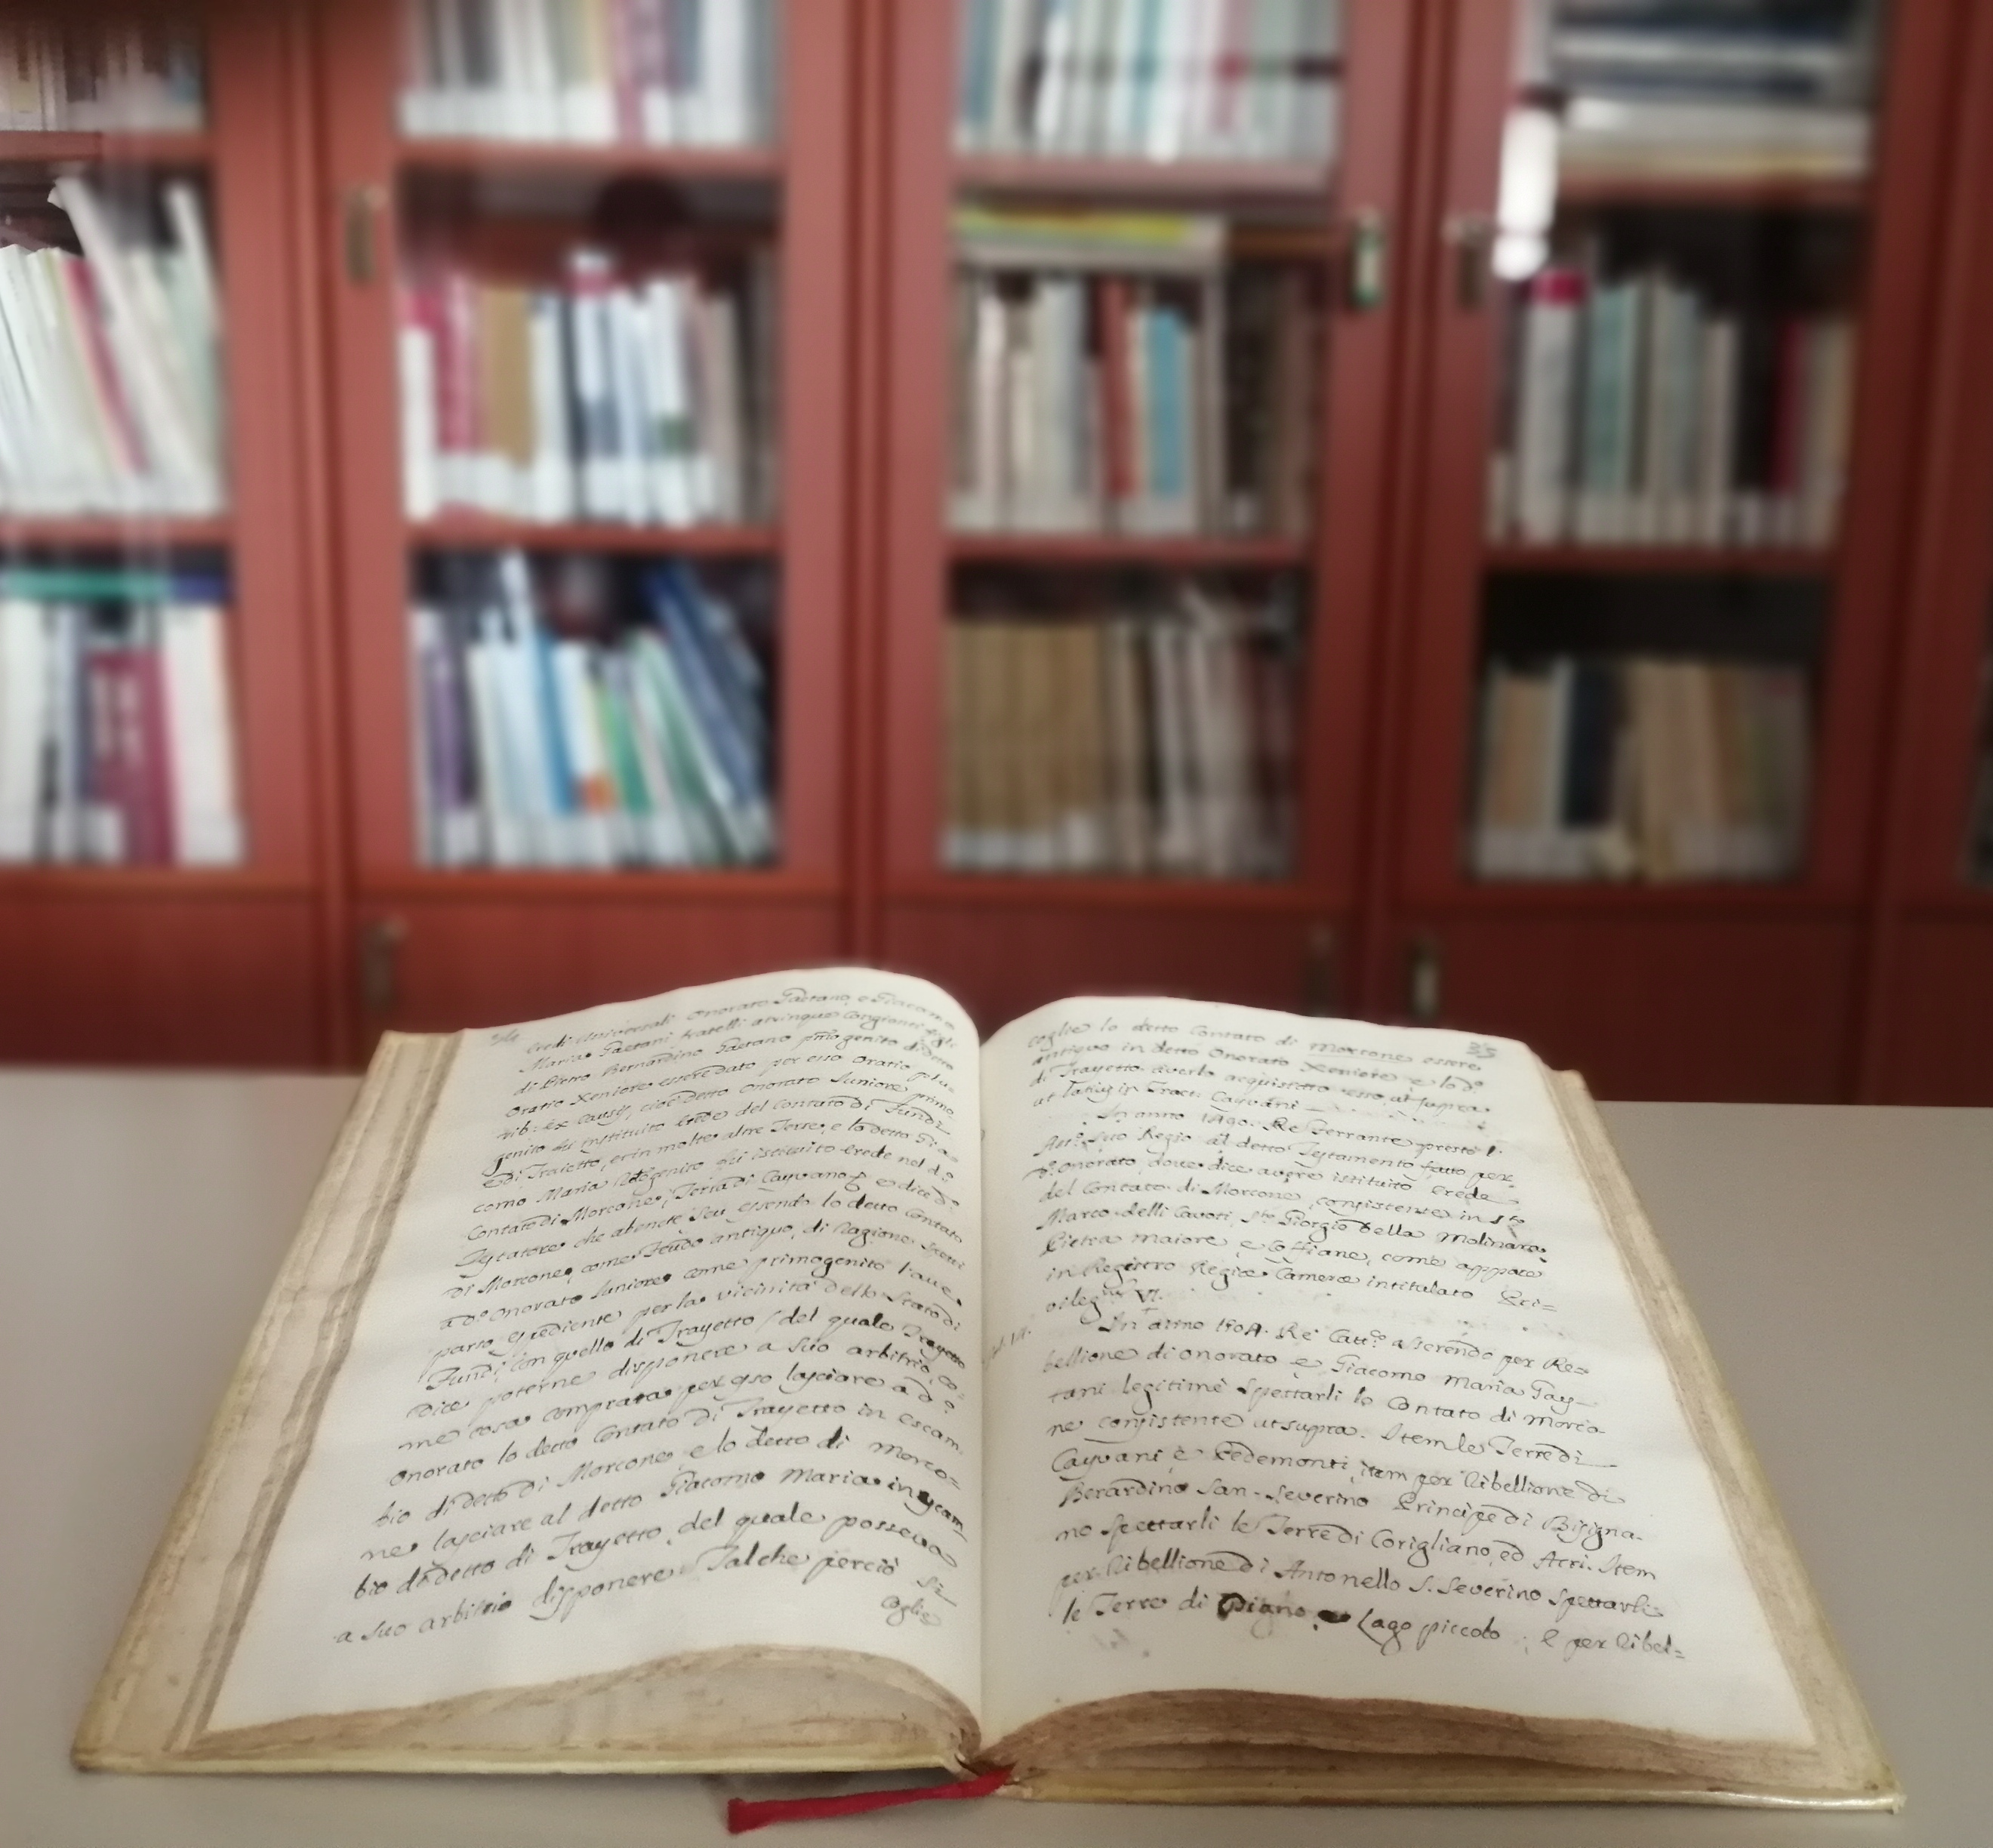 eredi Universali Onorato Gaetano, e Giacomo
Maria Gaetani fratelli
di Pietro Bernardino Gaetano primogenito di detto
Oratio per esso Oratio
cioè detto Onorato Juniore primo
genito fu instituito erede del Contato di Fundi
e di Traietto, et in molte altre Terre, e lo detto Gia=
como Maria fu istituito erede nel d.º
Contato di Morcone, Terra di Cayvano e dice d.º
Testatore che essendo lo detto Contato
di Morcone, come feudo antiquo, di Ragione
a d.º Onorato Juniore come primogenito l'ave
parso espediente per la vicinità dello Stato di
Fundi con quello di Trayetto / del quale Trayetto
dice poterne disponere a suo arbitrio, co=
me cosa comprata per esso lasciare a d.º
Onorato lo detto Contato di Trayetto in escam
bio di detto di Morcone, e lo detto di Morco=
ne lasciare al detto Giacomo Maria in escam
bio di detto di Trayetto, del quale posseva
a suo arbitrio disponere. Talche perciò si
coglie
35
coglie lo detto Contato di Morcone essere
antiquo in detto Onorato Xeniore, e lo d.º
di Trayetto averlo acquistato esso, ut supra
Cayvani
In anno Re Ferrante prestò l'
suo Regio al detto Testamento fatto per
d.º Onorato, dove dice avere istituito erede
del Contato di Morcone, consistente in S.to
Marco delli Cavoti, S.to Giorgio della Molinara,
Pietra maiore, e Coffiane, come appare
in Registro Regiæ Cameræ intitulato Pri=
vileg. VI.
In anno 1504. Re Catt.co asserendo per Re=
bellione di Onorato e Giacomo Maria Gay=
tani legitimè spettarli lo Contato di Morco=
ne consistente ut supra. Item le Terre di
Cayvani è Pedemonti, item per ribellione di
Berardino San-Severino Principe di Bisigna=
no spettarli le Terre di Corigliano, ed Acri. Item
per ribellione di Antonello S. Severino spettarli
le Terre di Lago piccolo; e per ribel=